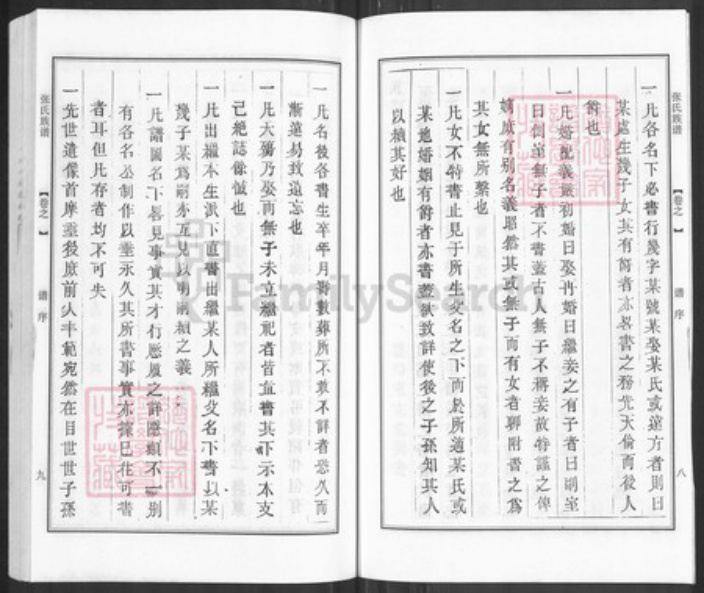 张氏族谱
【卷之一】
谱序
八
一凡各名下必書行幾字某號某娶某氏或遠方者則曰
某處生幾子女其有爵者亦畧書之務先天倫而後人
爵也
一凡婚配義嚴初婚日娶再婚日繼妾之有子者曰側室
曰側室無子者不書蓋古人無子不稱妾故特謹之俾
嫡庶有别名義昭然其或無子而有女者聊附書之爲
其女無所繫也
一凡女不特書止見于所生父名之下而於所適某氏或
某地婚姻有爵者亦書蓋欲致詳使後之子孫知其人
以賴其好也
一凡名後各書生卒年月壽數葬所不敢不詳者恐久而
漸遠易致遺忘也
一凡大殤乃娶而無子未立繼祀者皆直書其下示本支
己絶誌像誠也
一凡出繼本生派下直書出繼某人所繼父名下書以某
幾子某爲嗣亦互見以明嗣續之義
一凡譜圖名下畧見事實其才行履歷之詳應類不一别
有各名公制作以垂永久其所書事實亦據已往可書
者耳但凡存者均不可失
一先世遺像首摩羹後庶前人丰範宛然在目世世子孫
张氏族谱
【卷之一】
谱序
九
FamilySearch